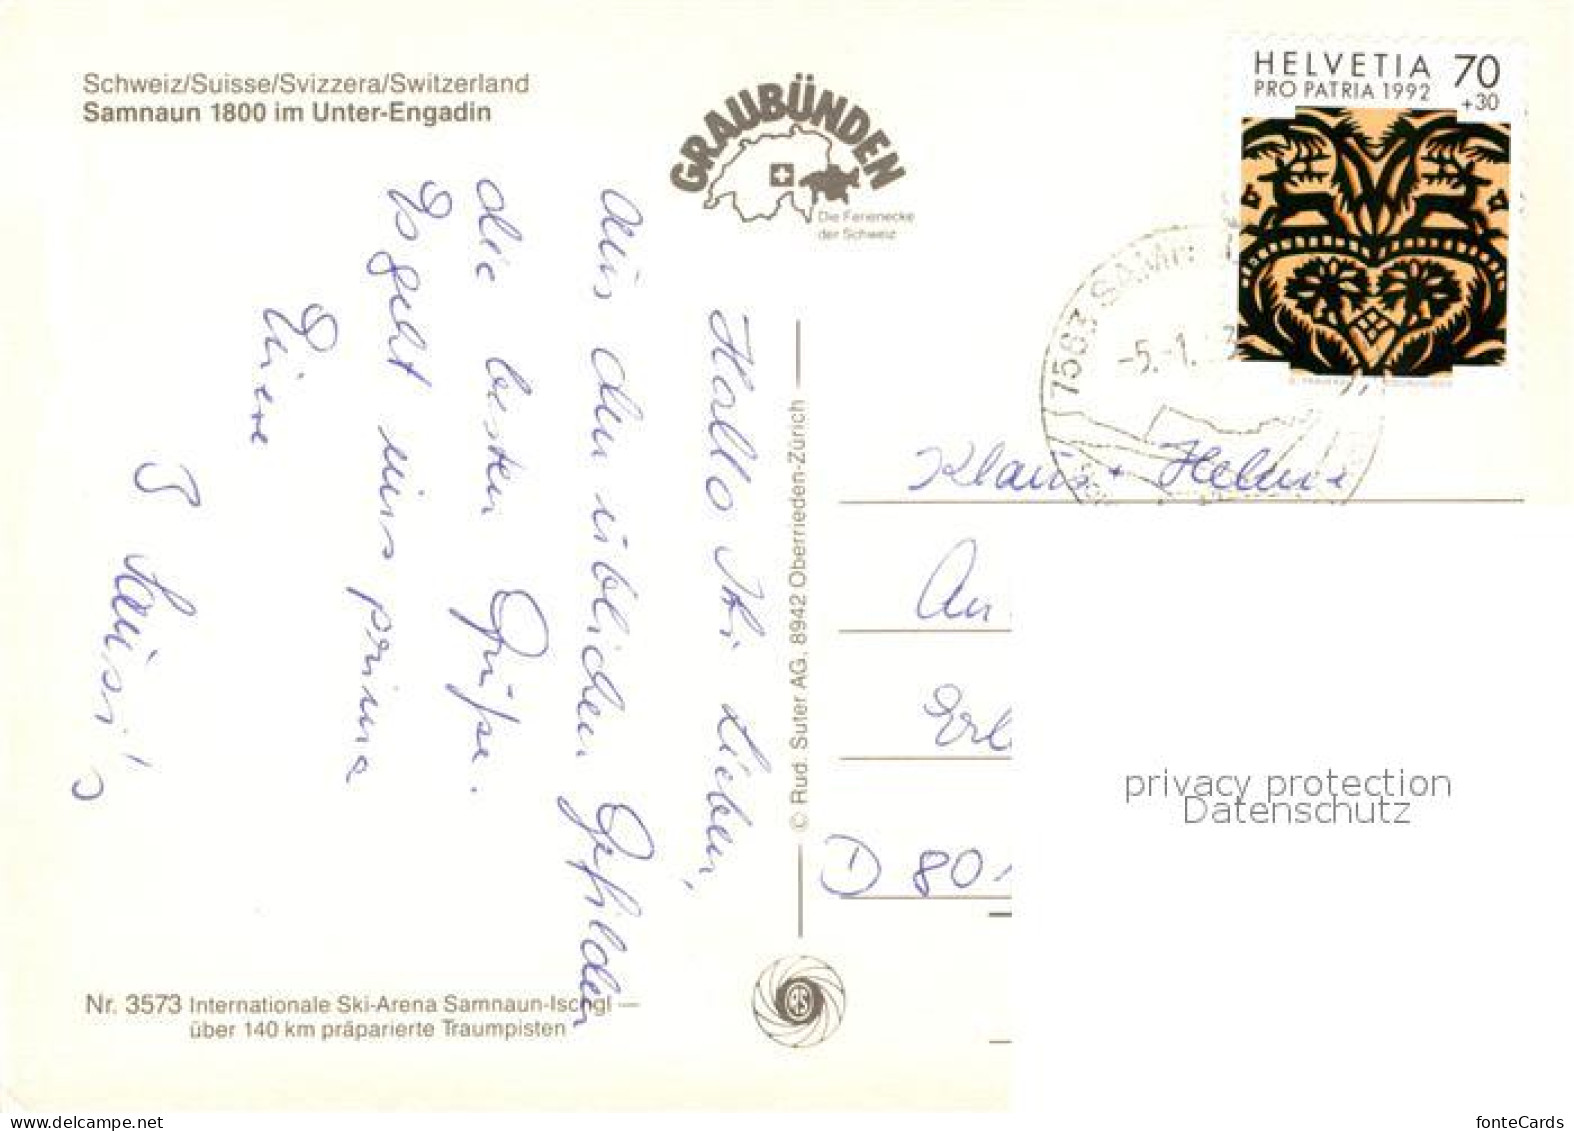 Schweiz/Suisse/Svizzera/Switzerland
Samnaun 1800 im Unter-Engadin
GRAUBÜNDEN
Die Ferienecke
der Schweiz
HELVETIA 70
PRO PATRIA 1992 +30
7563 SAMN
-5.-1.
Hallo Ihr Lieben,
aus den üblichen Gefilden
die besten Grüße.
Es geht uns prima
Eure
© Rud. Suter AG, 8942 Oberrieden-Zürich
Klaus + Helmi
An
Erl
D 80
privacy protection
Datenschutz
Nr. 3573 Internationale Ski-Arena Samnaun-Ischgl —
über 140 km präparierte Traumpisten
www.delcampe.net
fonteCards